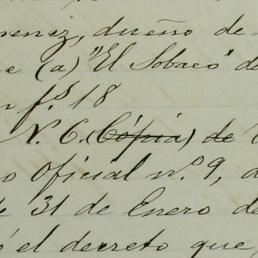 menez, dueño de
e (a) "El Sobaco" de
n fs. 18
N. C. (Cópia) de
o Oficial n.º 9, d
e 31 de Enero de
ó el decreto que,